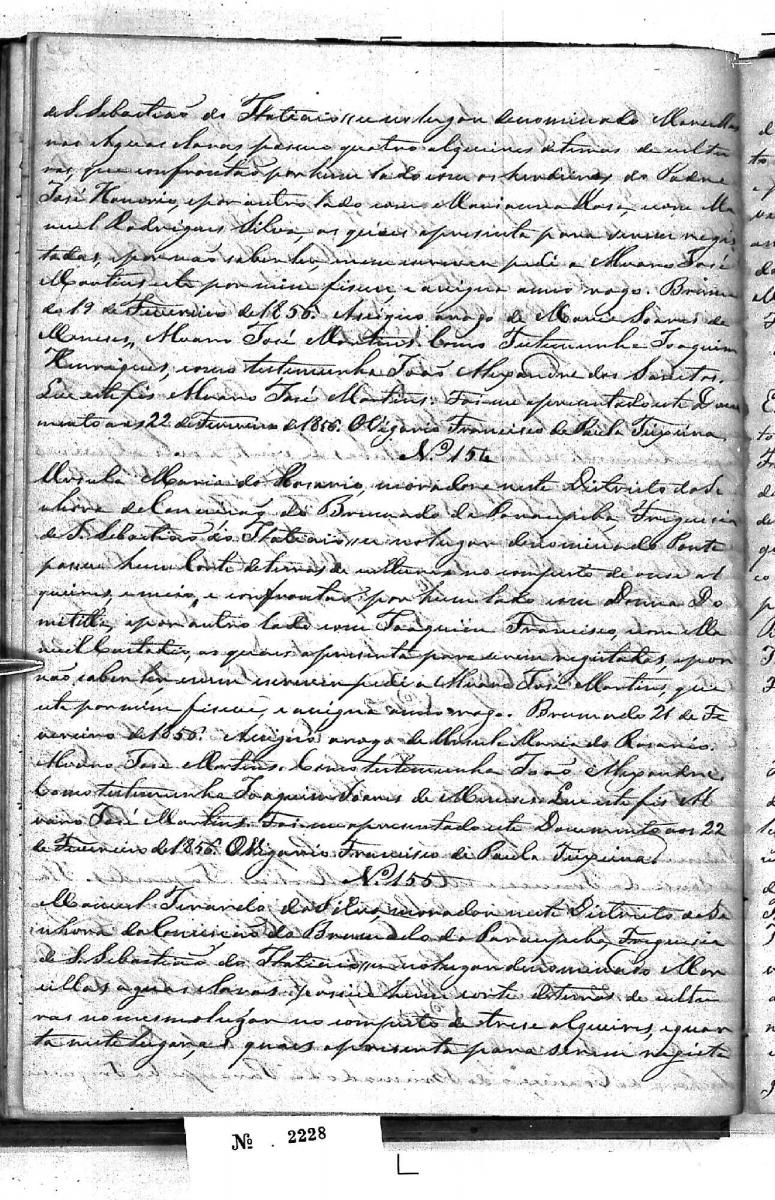 de S. Sebastião do Itatiaio, e no lugar denominado Morcillas
nas Aguas claras possue quatro alqueires de terras de cultu
ras, que confrontão por hum lado com os herdeiros do Padre
José Honorio, e por outro lado com Marianna Rosa, e com Ma
noel Rodrigues Silva, as quais apresenta para serem regis
tadas, e por não saber ler, nem escrever pedi a Alvaro José
Martins este por mim fisece, e asigna a meu rogo. Bruma
do 19 de Fevereiro de 1856. Asigno arogo de Maria Soares de
Meneses, Alvaro José Martins. Como Testemunha Joaquim
Henriques, como testemunha João Alexandre dos Santos.
Que este fis Alvaro José Martins. Foi me apresentado este Docu
mento aos 22 de Fevereiro de 1856. O Vigario Francisco de Paula Teixeira
Nº 154
Ursula Maria do Rosario, moradora neste Districto da Se
nhora da Conceição do Brumado do Paraupeba Freguesia
de S. Sebastião do Itatiaio, e no lugar denominado Ponte
possue hum Corte de terras de culturas no computo de onse al
queires, e meio, e confrontão por hum lado com Donna Do
mitilla, e por outro lado com Joaquim Francisco, e com Ma
noel Custodio, as quaes apresenta para serem registadas, e por
não saber ler, e nem escrever pedi a Alvaro José Martins, que
este por mim fisece, e asigna a meo rogo. Brumado 21 de Fe
vereiro de 1856. Asigno arogo de Ursula Maria do Rosario.
Alvaro José Martins. Como testemunha João Alexandre.
Como testemunha Joaquim Soares de Meneses. Que este fis Al
varo José Martins. Foi me apresentado este Documento aos 22
de Fevereiro de 1856. O Vigario Francisco de Paula Teixeira
Nº 155
Manoel da Silva, morador neste Districto da Se
nhora da Conceição do Brumado do Paraupeba, Freguesia
de S. Sebastião do Itatiaio, e no lugar denominado Mor
cillas aguas claras possue hum corte de terras de cultu
ras no mesmo lugar no computo de trese alqueires, e quar
ta neste lugar, as quais apresenta para serem regista
Nº 2228